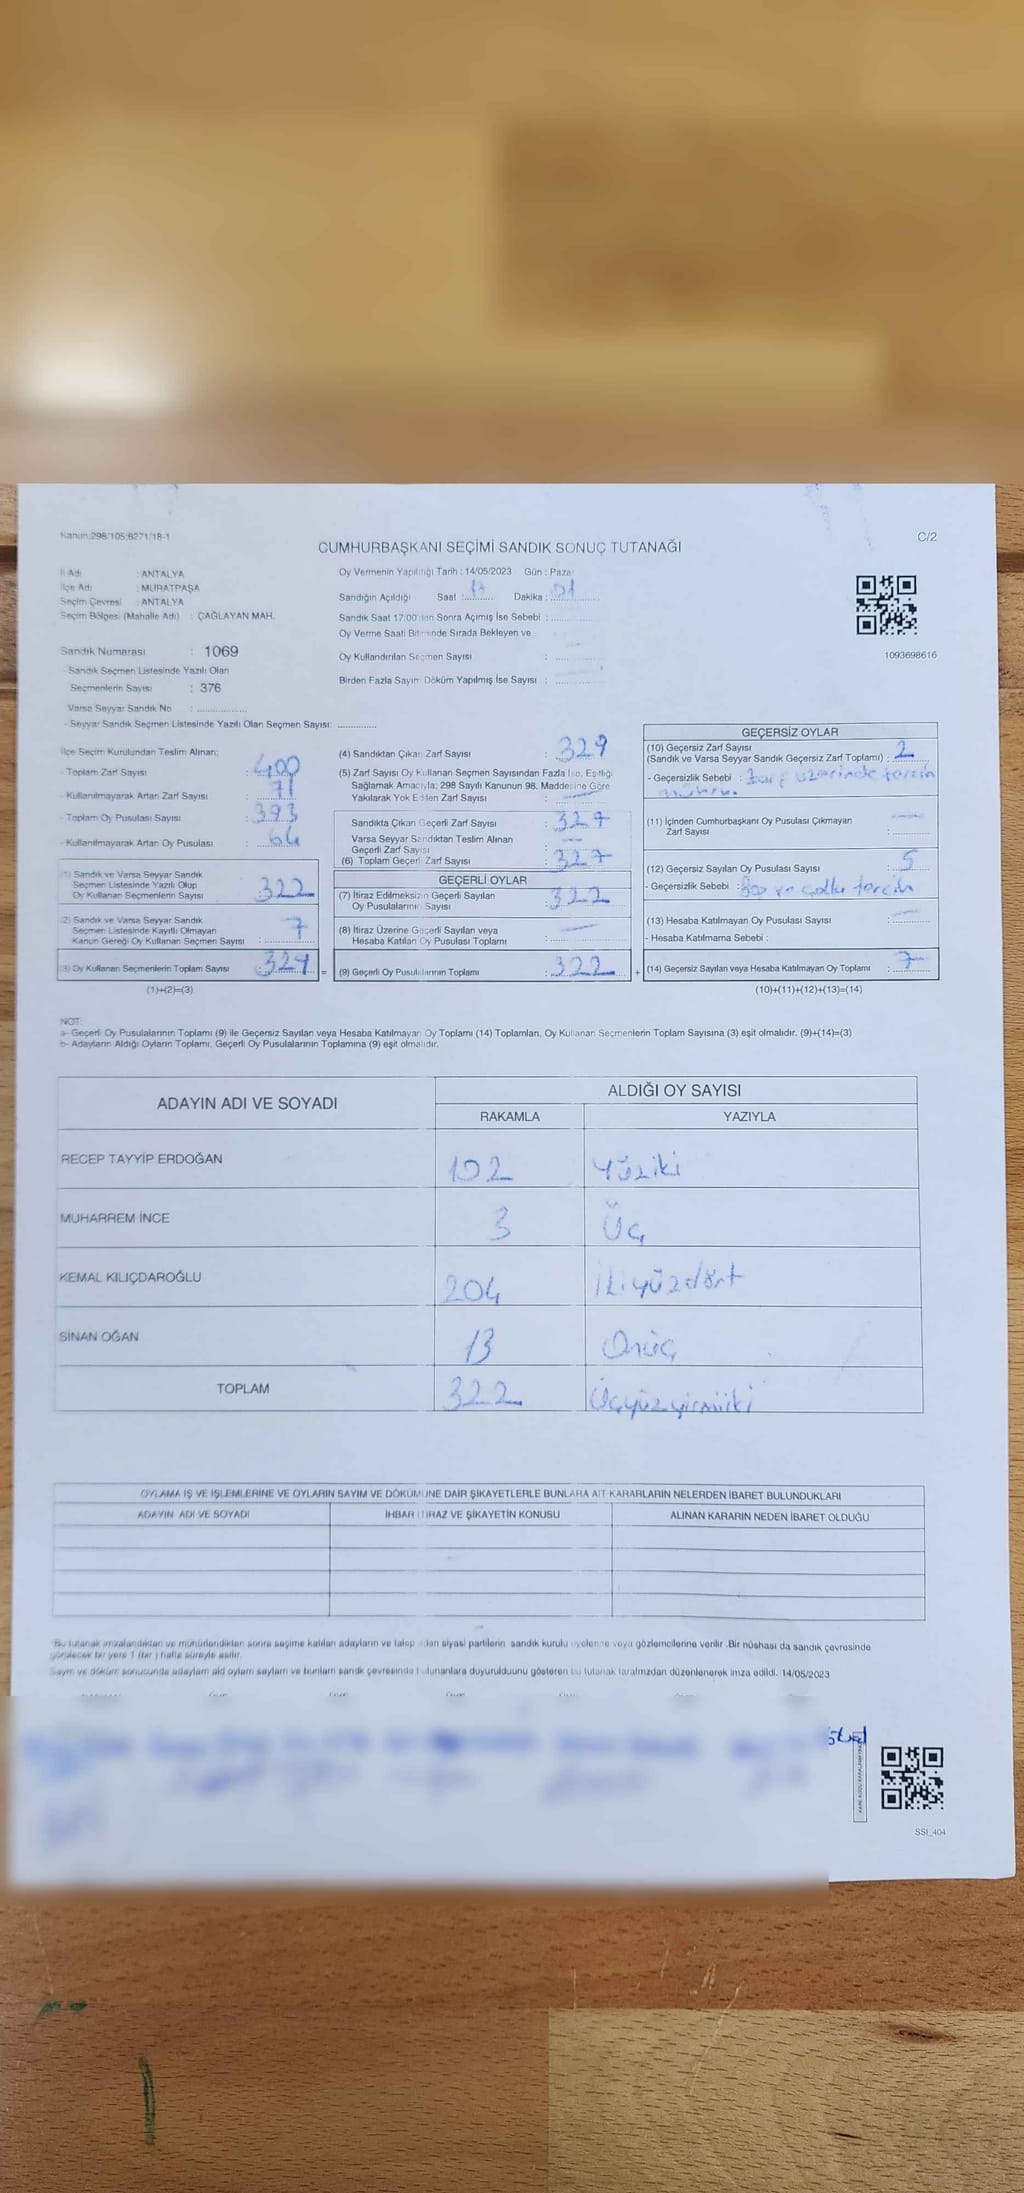 Kanun:298/105;6271/18-1
C/2
CUMHURBAŞKANI SEÇİMİ SANDIK SONUÇ TUTANAĞI
İl Adı : ANTALYA
İlçe Adı : MURATPAŞA
Seçim Çevresi : ANTALYA
Seçim Bölgesi (Mahalle Adı) : ÇAĞLAYAN MAH.
Sandık Numarası : 1069
- Sandık Seçmen Listesinde Yazılı Olan
Seçmenlerin Sayısı : 376
Varsa Seyyar Sandık No :
- Seyyar Sandık Seçmen Listesinde Yazılı Olan Seçmen Sayısı:
Oy Vermenin Yapıldığı Tarih : 14/05/2023 Gün : Pazar
Sandığın Açıldığı Saat : 17 Dakika : 01
Sandık Saat 17:00'den Sonra Açımış İse Sebebi :
Oy Verme Saati Bitiminde Sırada Bekleyen ve
Oy Kullandırılan Seçmen Sayısı :
Birden Fazla Sayım Döküm Yapılmış İse Sayısı :
1093698616
İlçe Seçim Kurulundan Teslim Alınan;
- Toplam Zarf Sayısı : 400
- Kullanılmayarak Artan Zarf Sayısı : 71
- Toplam Oy Pusulası Sayısı : 393
- Kullanılmayarak Artan Oy Pusulası : 64
(1) Sandık ve Varsa Seyyar Sandık
Seçmen Listesinde Yazılı Olup
Oy Kullanan Seçmenlerin Sayısı : 322
(2) Sandık ve Varsa Seyyar Sandık
Seçmen Listesinde Kayıtlı Olmayan
Kanun Gereği Oy Kullanan Seçmen Sayısı : 7
(3) Oy Kullanan Seçmenlerin Toplam Sayısı : 329 =
(1)+(2)=(3)
(4) Sandıktan Çıkan Zarf Sayısı : 329
(5) Zarf Sayısı Oy Kullanan Seçmen Sayısından Fazla İse, Eşitliği
Sağlamak Amacıyla; 298 Sayılı Kanunun 98. Maddesine Göre
Yakılarak Yok Edilen Zarf Sayısı : —
Sandıkta Çıkan Geçerli Zarf Sayısı : 327
Varsa Seyyar Sandıktan Teslim Alınan
Geçerli Zarf Sayısı : —
(6) Toplam Geçerli Zarf Sayısı : 327
GEÇERLİ OYLAR
(7) İtiraz Edilmeksizin Geçerli Sayılan
Oy Pusulalarının Sayısı : 322
(8) İtiraz Üzerine Geçerli Sayılan veya
Hesaba Katılan Oy Pusulası Toplamı : —
(9) Geçerli Oy Pusulalarının Toplamı : 322 +
GEÇERSİZ OYLAR
(10) Geçersiz Zarf Sayısı
(Sandık ve Varsa Seyyar Sandık Geçersiz Zarf Toplamı) : 2
- Geçersizlik Sebebi : Zarf üzerinde tercih
mührü.
(11) İçinden Cumhurbaşkanı Oy Pusulası Çıkmayan
Zarf Sayısı : —
(12) Geçersiz Sayılan Oy Pusulası Sayısı : 5
- Geçersizlik Sebebi : Boş ve çoklu tercih
(13) Hesaba Katılmayan Oy Pusulası Sayısı : —
- Hesaba Katılmama Sebebi :
(14) Geçersiz Sayılan veya Hesaba Katılmayan Oy Toplamı : 7
(10)+(11)+(12)+(13)=(14)
NOT:
a- Geçerli Oy Pusulalarının Toplamı (9) ile Geçersiz Sayılan veya Hesaba Katılmayan Oy Toplamı (14) Toplamları, Oy Kullanan Seçmenlerin Toplam Sayısına (3) eşit olmalıdır. (9)+(14)=(3)
b- Adayların Aldığı Oyların Toplamı, Geçerli Oy Pusulalarının Toplamına (9) eşit olmalıdır.
ADAYIN ADI VE SOYADI ALDIĞI OY SAYISI
RAKAMLA YAZIYLA
RECEP TAYYİP ERDOĞAN 102 Yüziki
MUHARREM İNCE 3 Üç
KEMAL KILIÇDAROĞLU 204 İkiyüzdört
SİNAN OĞAN 13 Onüç
TOPLAM 322 Üçyüzyirmiiki
OYLAMA İŞ VE İŞLEMLERİNE VE OYLARIN SAYIM VE DÖKÜMÜNE DAİR ŞİKAYETLERLE BUNLARA AİT KARARLARIN NELERDEN İBARET BULUNDUKLARI
ADAYIN ADI VE SOYADI İHBAR İTİRAZ VE ŞİKAYETİN KONUSU ALINAN KARARIN NEDEN İBARET OLDUĞU
Bu tutanak imzalandıktan ve mühürlendikten sonra seçime katılan adayların ve talep eden siyasi partilerin sandık kurulu üyelerine veya gözlemcilerine verilir .Bir nüshası da sandık çevresinde
görülecek bir yere 1 (bir ) hafta süreyle asılır.
Sayım ve döküm sonucunda adayların ald oyların sayların ve bunların sandık çevresinde bulunanlara duyurulduunu gösteren bu tutanak tarafmzdan düzenlenerek imza edildi. 14/05/2023
SSI_404